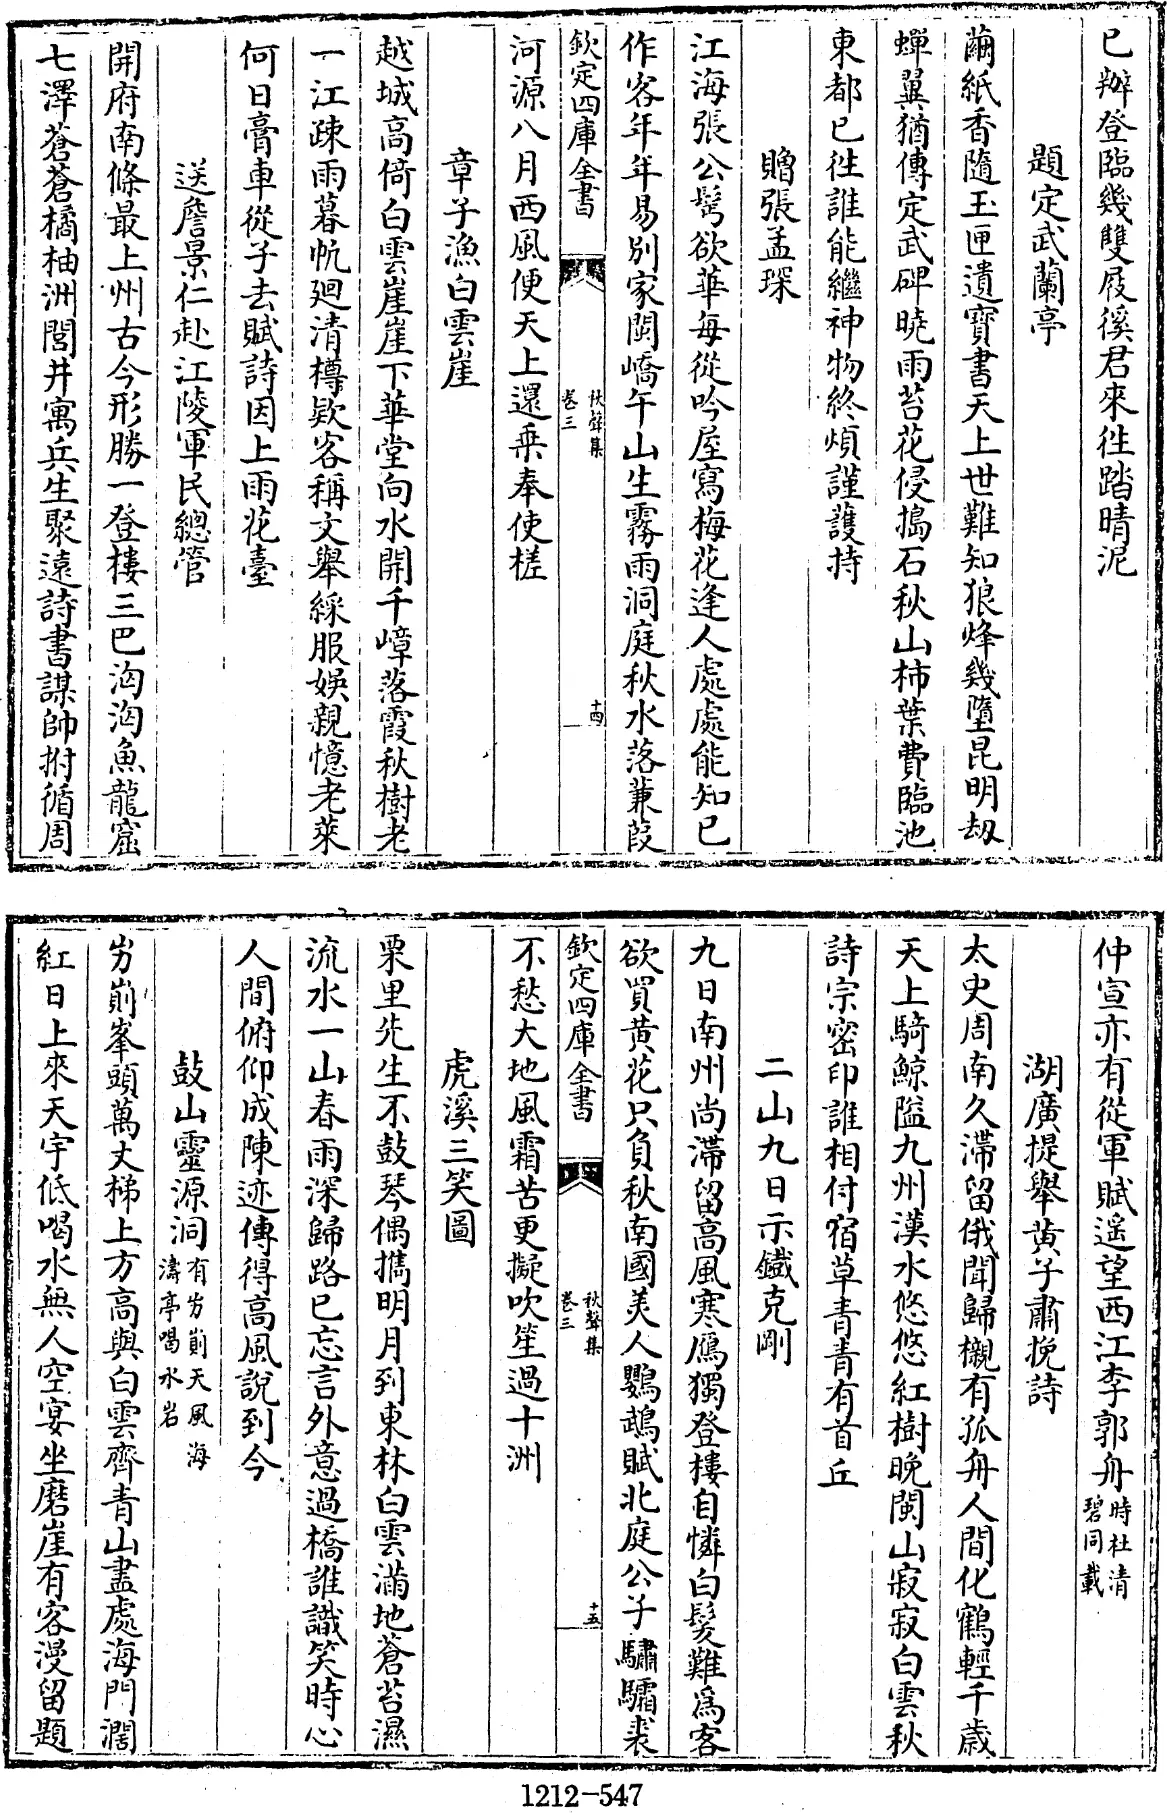 已辦登臨幾雙屐徯君來往踏晴泥
題定武蘭亭
繭紙香隨玉匣遺寶書天上世難知狼烽幾墮昆明刼
蟬翼猶傳定武碑曉雨苔花侵搗石秋山柿葉費臨池
東都已往誰能繼神物終煩謹護持
贈張孟琛
江海張公鬢欲華每從吟屋寫梅花逢人處處能知已
作客年年易別家閩嶠午山生霧雨洞庭秋水落蒹葭
欽定四庫全書
秋聲集
卷三
十四
河源八月西風便天上還乘奉使槎
章子漁白雲崖
越城高倚白雲崖崖下華堂向水開千嶂落霞秋樹老
一江疎雨暮帆廻清樽欵客稱文舉綵服娛親憶老萊
何日膏車從子去賦詩因上雨花臺
送詹景仁赴江陵軍民總管
開府南條最上州古今形勝一登樓三巴洶洶魚龍窟
七澤蒼蒼橘柚洲閭井寓兵生聚遠詩書謀帥拊循周
仲宣亦有從軍賦遥望西江李郭舟時杜清碧同載
湖廣提舉黄子肅挽詩
太史周南久滯留俄聞歸櫬有孤舟人間化鶴輕千歲
天上騎鯨隘九州漢水悠悠紅樹晚閩山寂寂白雲秋
詩宗密印誰相付宿草青青有首丘
二山九日示鐵克剛
九日南州尚滯留高風寒鴈獨登樓自憐白髮難爲客
欲買黄花只負秋南國美人鸚鵡賦北庭公子驌驦裘
欽定四庫全書
秋聲集
卷三
十五
不愁大地風霜苦更擬吹笙過十洲
虎溪三笑圖
栗里先生不鼓琴偶攜明月到東林白雲滿地蒼苔濕
流水一山春雨深歸路已忘言外意過橋誰識笑時心
人間俯仰成陳迹傳得高風說到今
鼓山靈源洞有屴崱天風海濤亭喝水岩
屴崱峯頭萬丈梯上方高與白雲齊青山盡處海門濶
紅日上來天宇低喝水無人空宴坐磨崖有客漫留題
1212-547